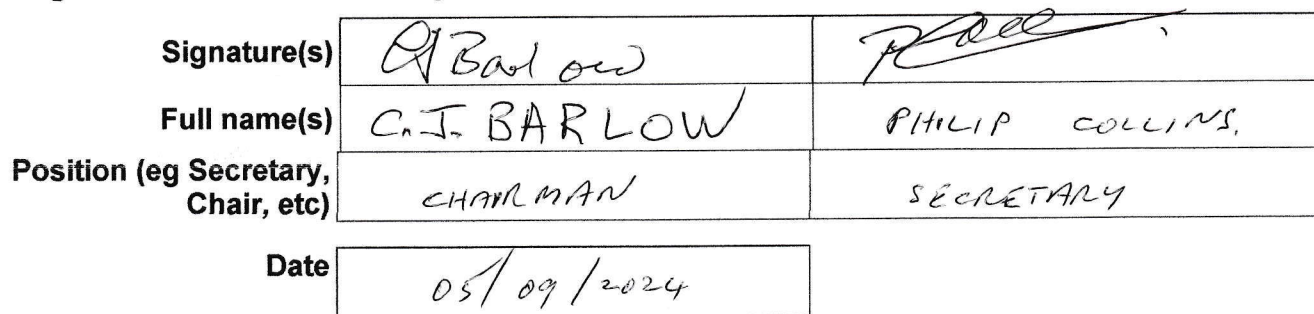 Signature(s) CJBarlow
Full name(s) C.J. BARLOW PHILIP COLLINS.
Position (eg Secretary,
Chair, etc) CHAIRMAN SECRETARY
Date 05/09/2024